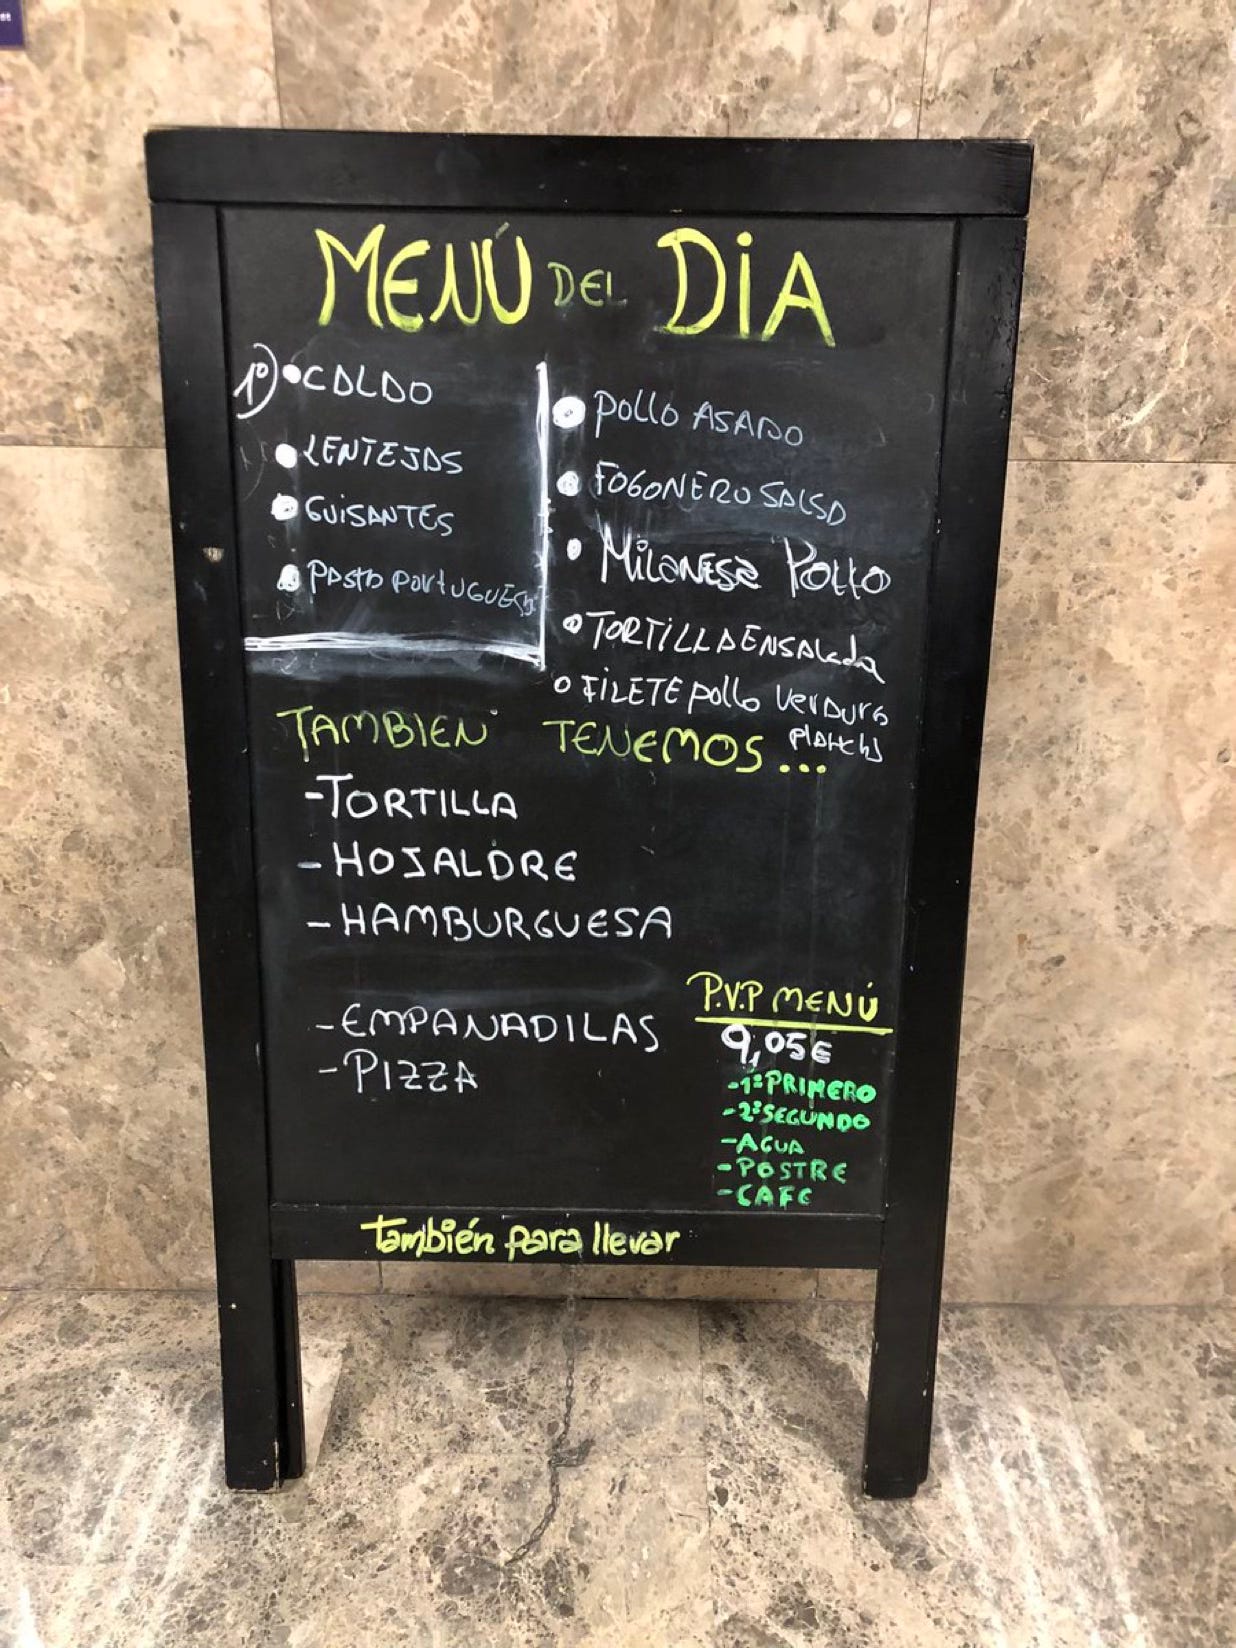 MENÚ DEL DÍA
1º) • CALDO
• LENTEJAS
• GUISANTES
• PASTA PORTUGUESA
• POLLO ASADO
• FOGONERO SALSA
• MILANESA POLLO
• TORTILLA ENSALADA
• FILETE POLLO VERDURA
PLANCHA
TAMBIEN TENEMOS...
-TORTILLA
-HOJALDRE
-HAMBURGUESA
-EMPANADILAS
-PIZZA
P.V.P MENÚ
9,05€
-1º PRIMERO
-2º SEGUNDO
-AGUA
-POSTRE
-CAFE
También para llevar